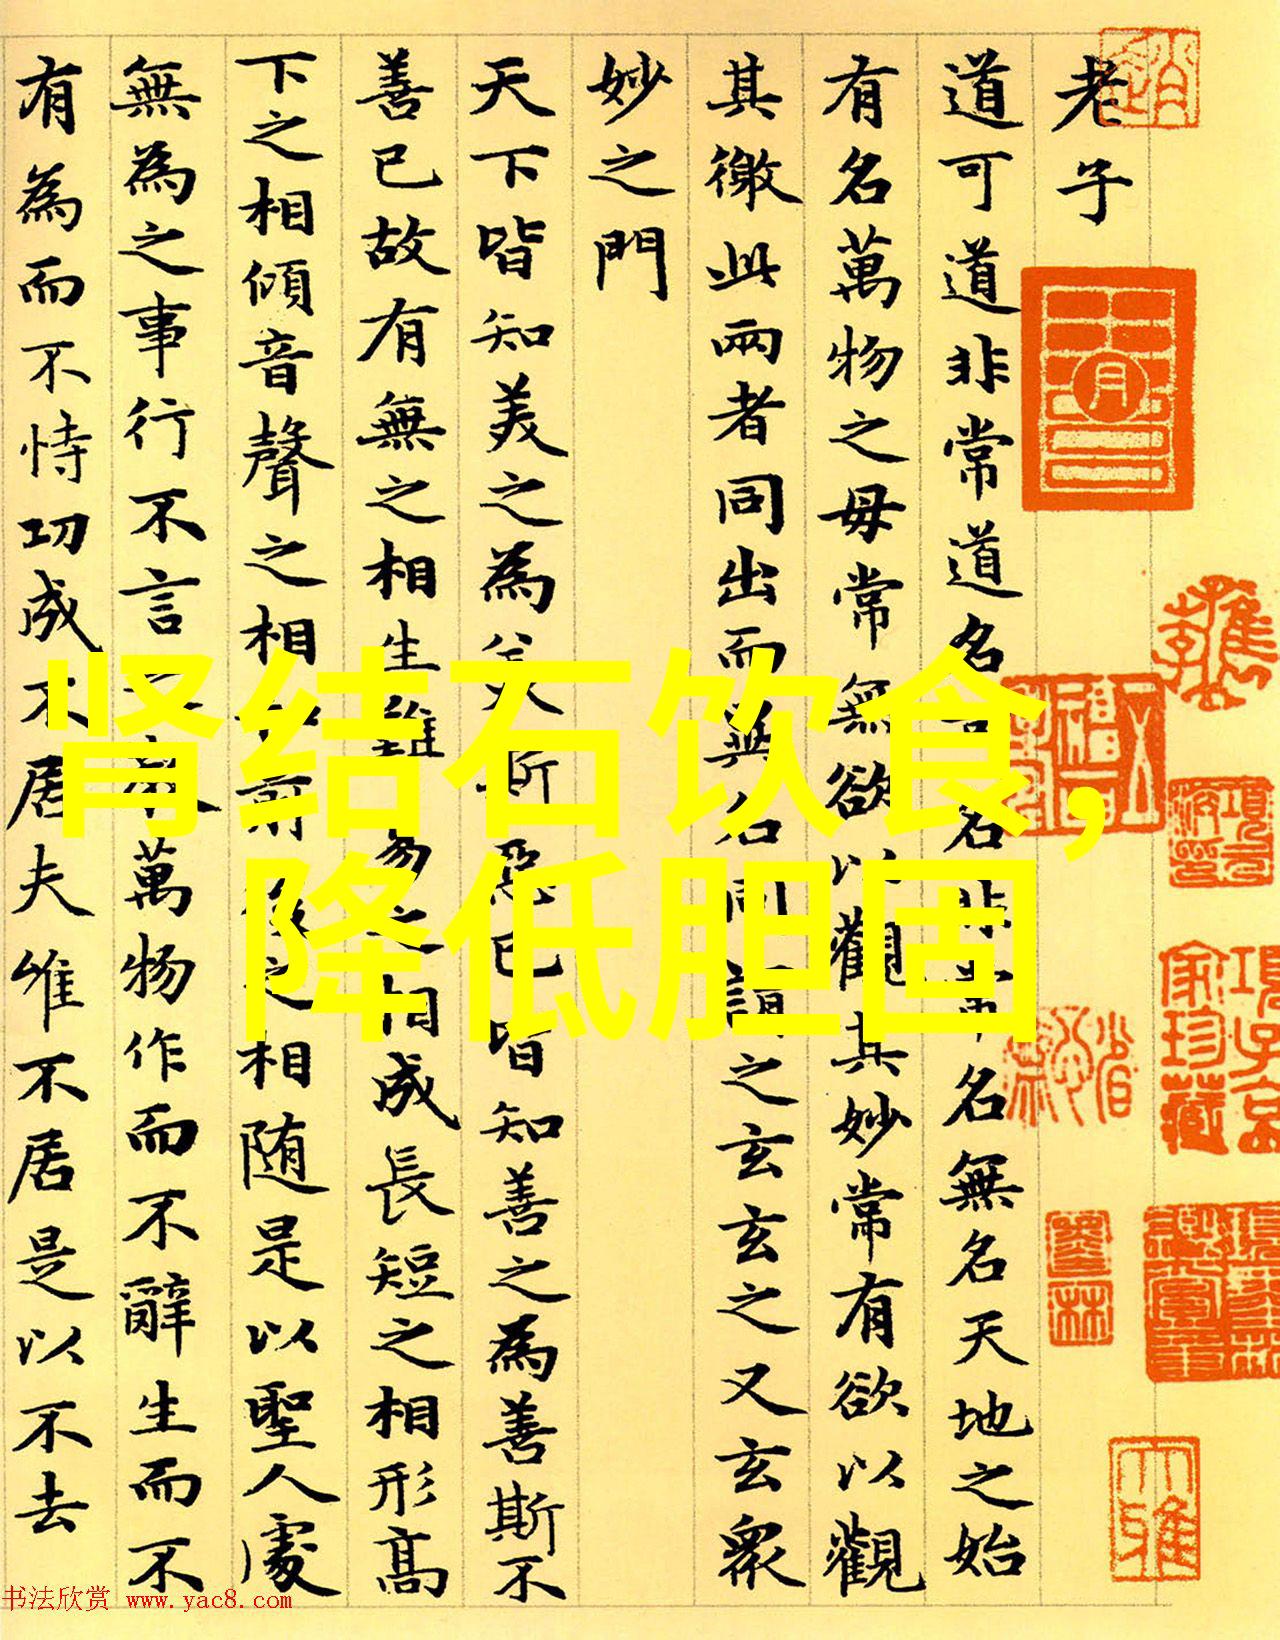 老子
道可道非常道名可名非常名無名天地之始
有名萬物之母常無欲以觀其妙常有欲以觀
其徼此兩者同出而異名同謂之玄玄之又玄衆
妙之門
天下皆知美之為美斯惡已皆知善之為善斯不
善已故有無之相生難易之相成長短之相形高
下之相傾音聲之相和前後之相随是以聖人處
無為之事行不言之教萬物作而不辭生而不
有為而不恃功成不居夫唯不居是以不去
肾结石饮食,
降低胆固
书法欣赏 www.yac8.com